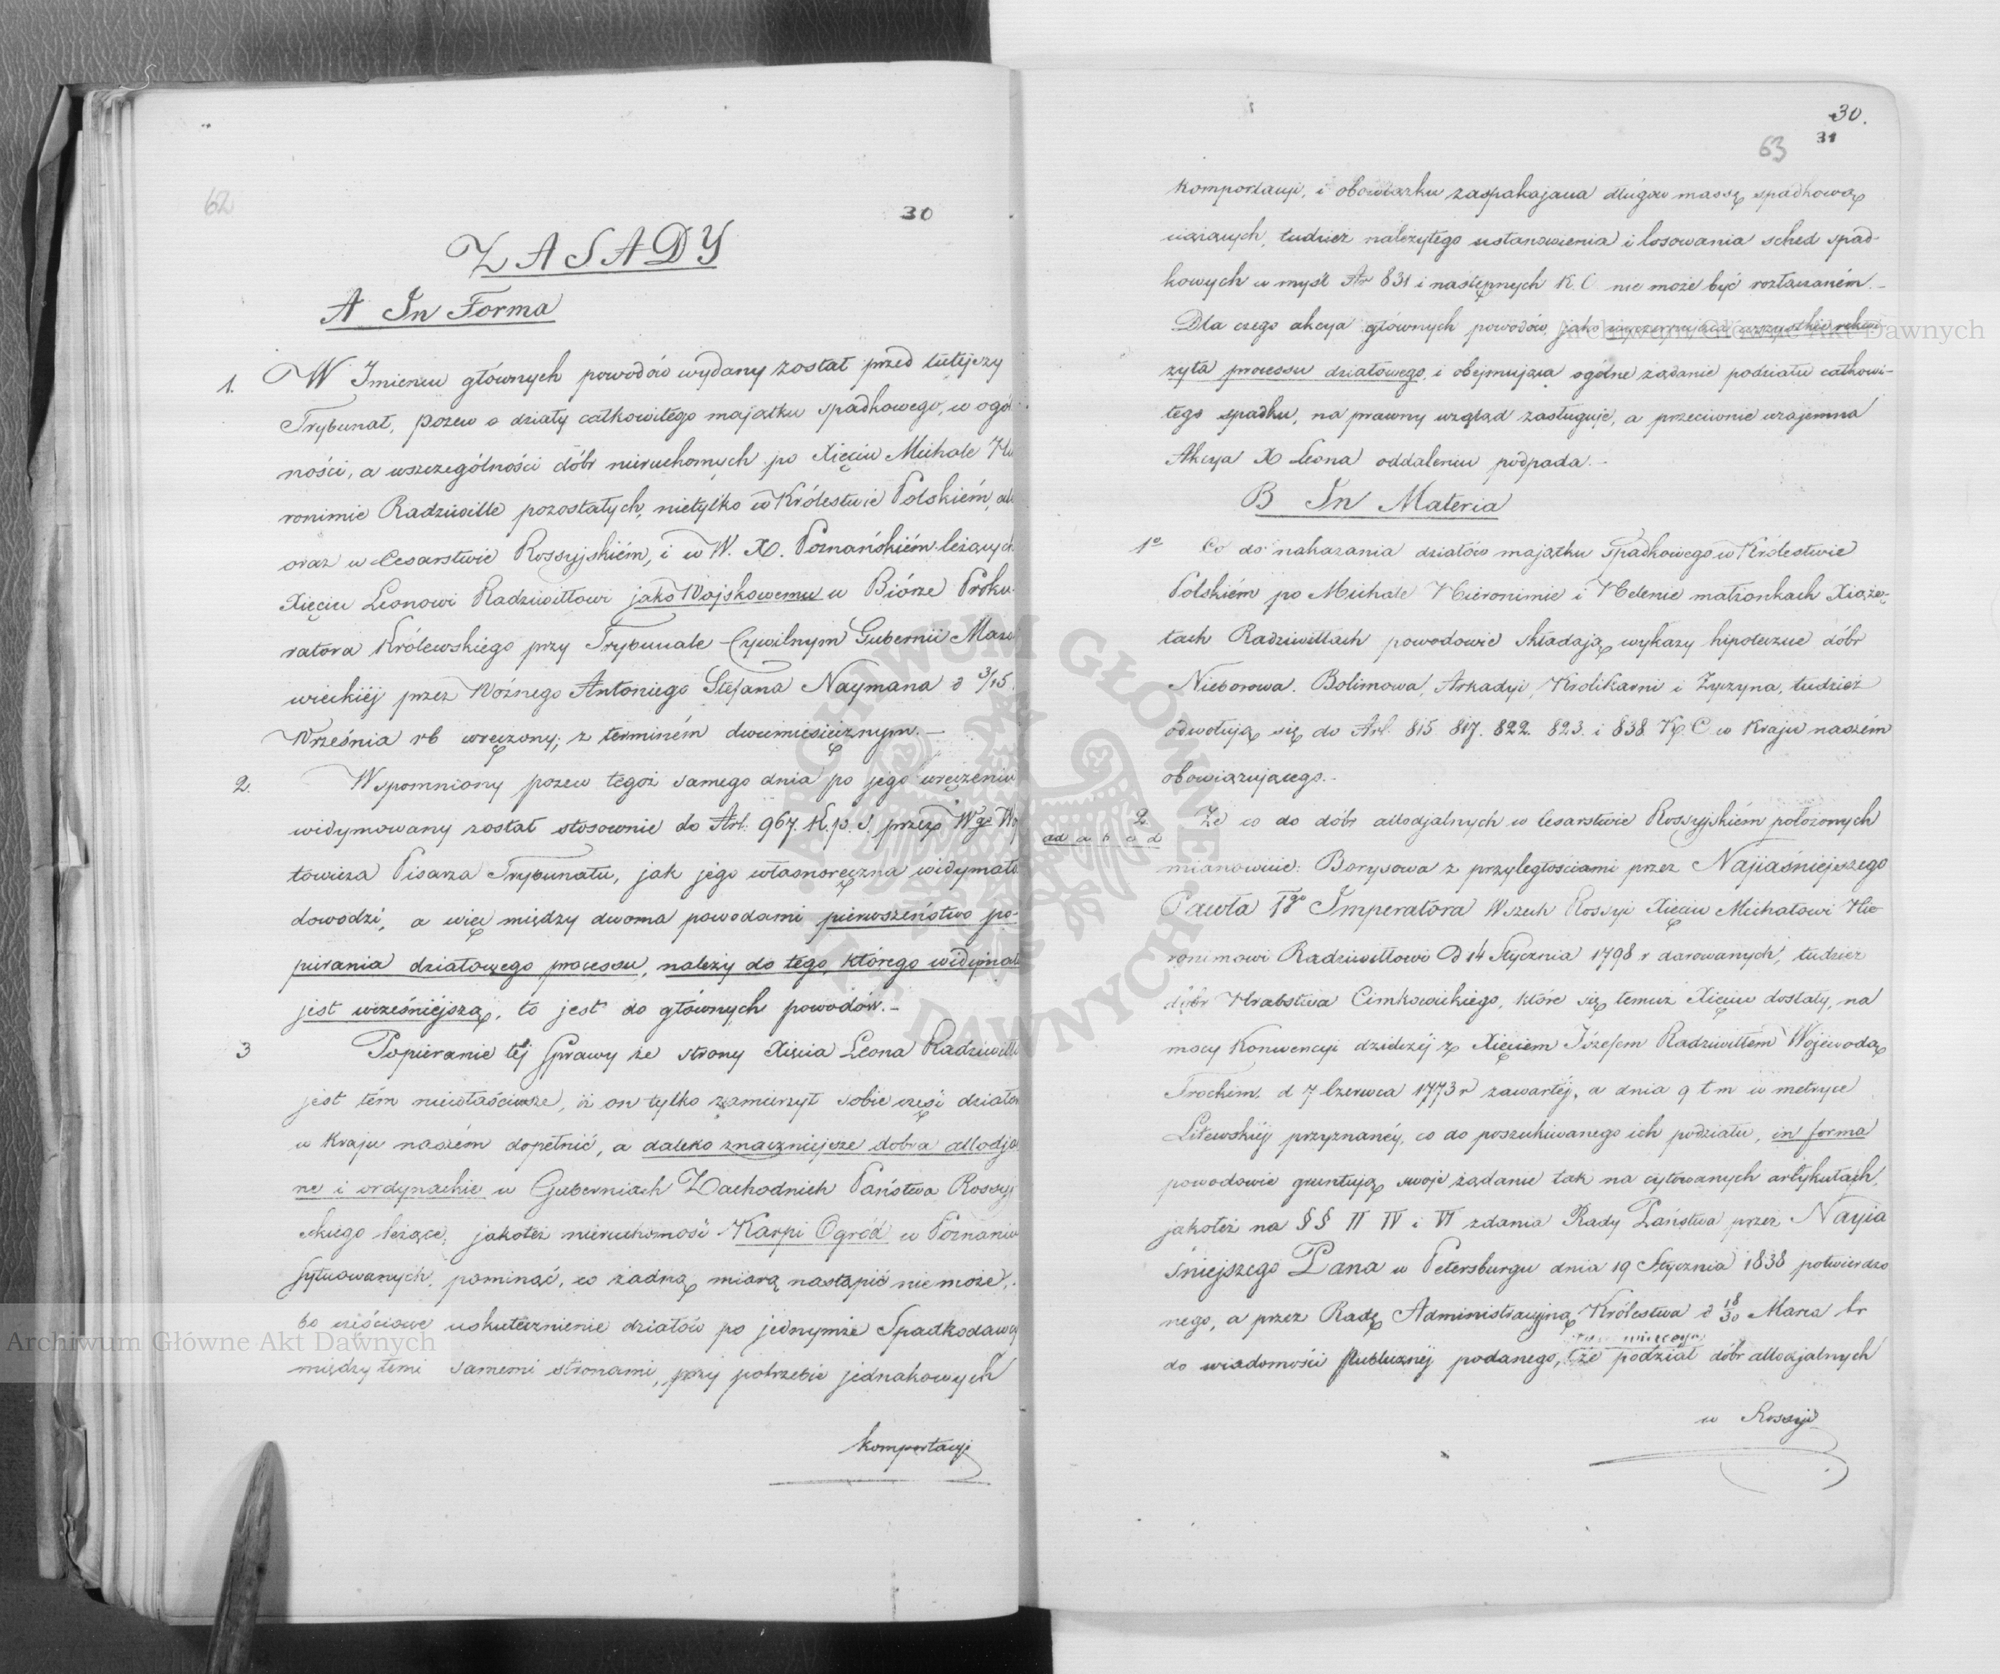 62
30
ZASADY
A In Forma
1. W Imieniu głównych powodów wydany został przed tutejszy
Trybunał, pozew o działy całkowitego majątku spadkowego, w ogól
ności, a wszczególności dóbr nieruchomych po Xięciu Michale Hie
ronimie Radziwille pozostałych, nietylko w Królestwie Polskiém, ale
oraz w Cesarstwie Rossyjskiém, i w W. X. Poznańskiém leżących
Xięciu Leonowi Radziwiłłowi jako Wojskowemu w Biórze Proku-
ratora Królewskiego przy Trybunale Cywilnym Gubernii Mazo
wieckiéj przez Woźnego Antoniego Stefana Naymana d 3/15
Września rb wręczony; z terminém dwumiesięcznym.—
2. Wspomniony pozew tegoż samego dnia po jego wręczeniu
widymowany został stosownie do Art. 967. K.p.S. przez Wgo
towicza Pisarza Trybunału, jak jego własnoręczna widymata
dowodzi, a więc między dwoma powodami pierwszeństwo po-
pierania działowego processu, należy do tego, którego widymata
jest wcześniejszą, to jest do głównych powodów.—
3 Popieranie téj Sprawy ze strony Xięcia Leona Radziwiłła
jest tém niewłaściwsze, iż on tylko zamierzył sobie część działów
w Kraju naszém dopełnić, a daleko znaczniejsze dobra allodjal
ne i ordynackie w Guberniach Zachodnich Państwa Rossyj
skiego leżące, jakoteż nieruchomość Karpi Ogród w Poznaniu
sytuowanych, pominąć, co żadną miarą nastąpić nie może,
bo częściowe uskutecznienie działów po jednymże Spadkodawcy
między temi samemi stronami, przy potrzebie jednakowych
komportacyi
30.
31
63
komportacyi, i obowiązku zaspakajania długów massę spadkową
ciążących, tudzież należytego ustanowienia i losowania sched spad-
kowych w myśl Ar 831 i następnych K.C. nie może być roztaczaném.—
Dla czego akcya głównych powodów, jako wyczerpująca wszystkie rekwi
zyta processu działowego, i obejmująca ogólne żądanie podziału całkowi-
tego spadku, na prawny wzgląd zasługuje, a przeciwnie wzajemna
Akcya X Leona oddaleniu podpada.—
B In Materia
1o Co do nakazania działów majątku Spadkowego w Królestwie
Polskiém po Michale Hieronimie i Helenie małżonkach Xiążę-
tach Radziwiłłach powodowie składają wykazy hipoteczne dóbr
Nieborowa. Bolimowa, Arkadyi, Krolikarni i Zyczyna, tudzież
odwołują się do Art. 815 817. 822. 823. i 838 K.C. w Kraju naszém
obowiązującego.—
2. Że co do dóbr allodjalnych w Cesarstwie Rossyjskiém położonych
ad a b c d
mianowicie: Borysowa z przyległościami przez Najjaśniejszego
Pawła Igo Imperatora Wszech Rossyi Xięciu Michałowi Hie
ronimowi Radziwiłłowi D 14 Stycznia 1798 r darowanych, tudzież
dóbr Hrabstwa Cimkowickiego, które się temuż Xięciu dostały, na
mocy Konwencyi dzielczéj z Xięciem Józefem Radziwiłłem Wojewodą
Trockim. d 7 Czerwca 1773 r zawartéj, a dnia 9 t m w metryce
Litewskiéj przyznanéj, co do poszukiwanego ich podziału, in forma
powodowie gruntują swoje żądanie tak na cytowanych artykułach,
jakoteż na §§ II IV i VI zdania Rady Państwa przez Nayja
śniejszego Pana w Petersburgu dnia 19 Stycznia 1838 potwierdzo
nego, a przez Radę Administracyjną Królestwa d 18/30 Marca br
do wiadomości publicznéj podanego, że podział dóbr allodjalnych
w Rossyi
Archiwum Główne Akt Dawnych
Archiwum Główne Akt Dawnych
ARCHIWUM GŁÓWNE AKT DAWNYCH